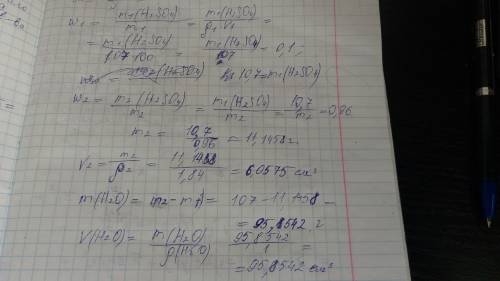 w₁ = m₁(H₂SO₄) / m₁ = m₁(H₂SO₄) / ρ₁V₁ =
= m₁(H₂SO₄) / 1,07·100 = m₁(H₂SO₄) / 107 = 0,1;
10,7 = m₁(H₂SO₄)
w₂ = m₂(H₂SO₄) / m₂ = m₁(H₂SO₄) / m₂ = 10,7 / m₂ = 0,96
m₂ = 10,7 / 0,96 = 11,1458 г.
V₂ = m₂ / ρ₂ = 11,1458 / 1,84 = 6,0575 см³
m(H₂O) = (m₂ - m₁) = 107 - 11,1458 =
= 95,8542 г
V(H₂O) = m(H₂O) / ρ(H₂O) = 95,8542 / 1 =
= 95,8542 см³